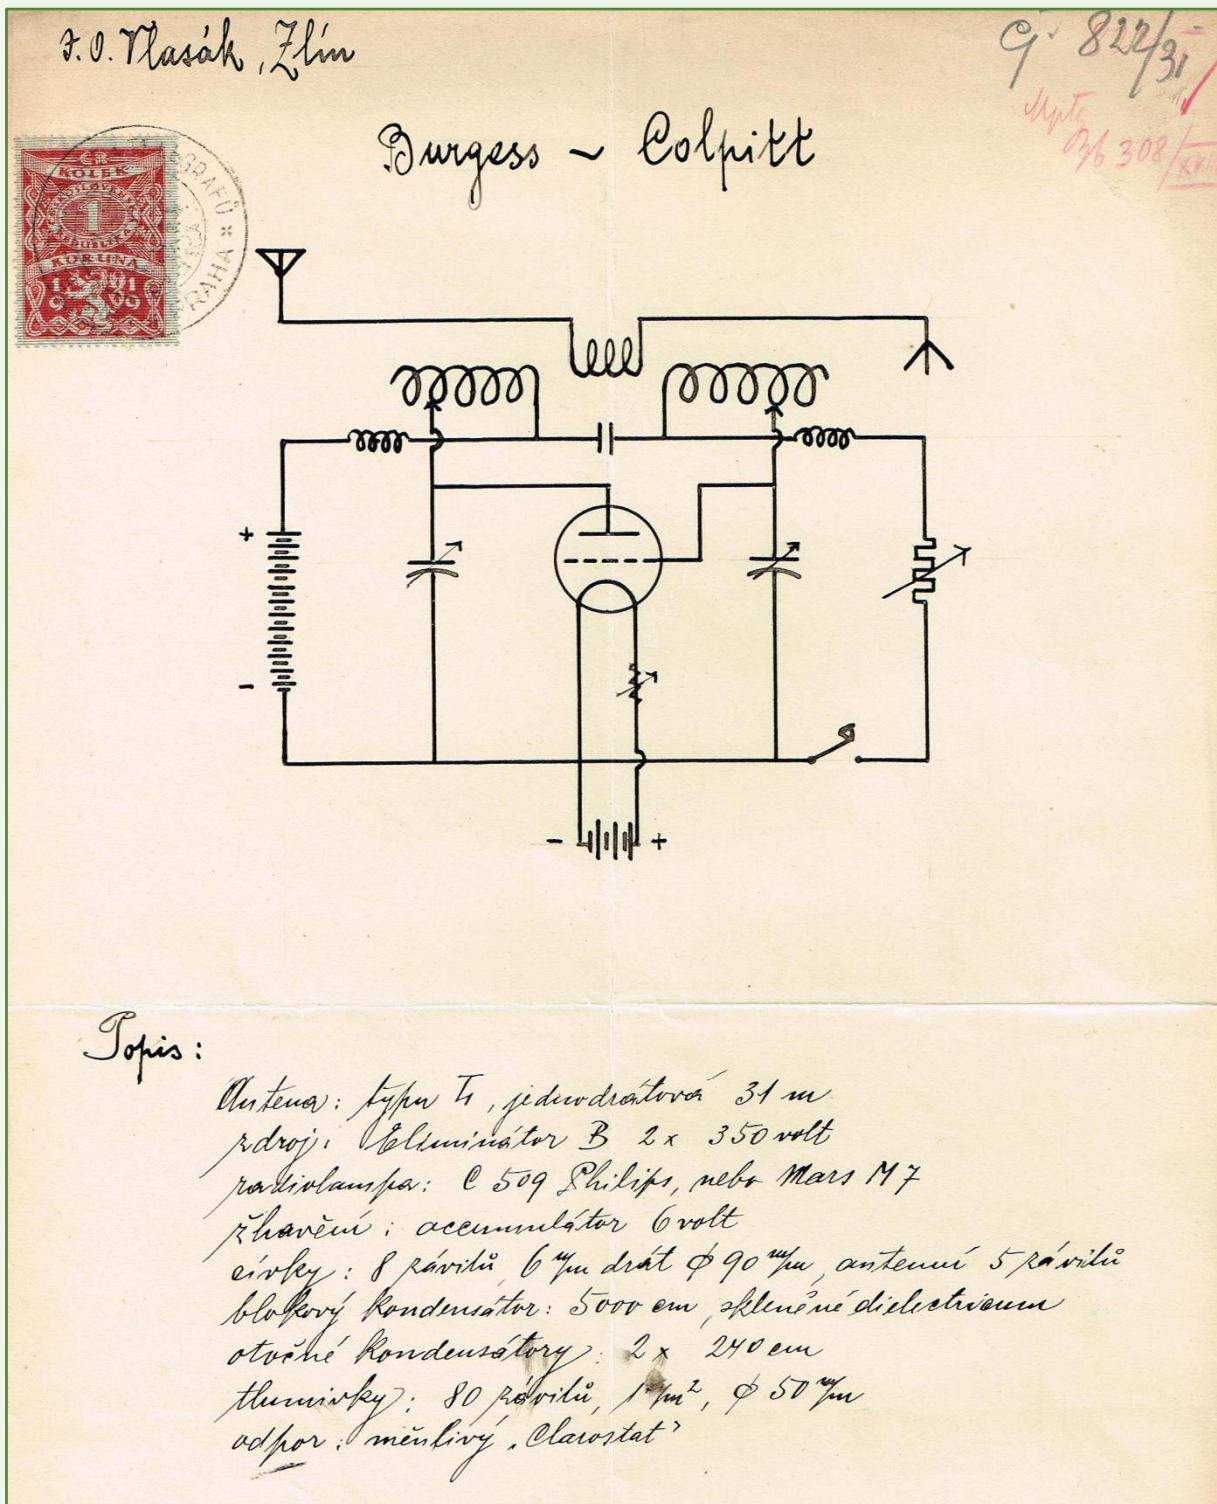 J.O. Vlasák, Zlín
Čj. 822/31
308/XVIII
Burgess ~ Colpitt
KOLEK
1
KORUNA
1919
PRAHA
+
-
- +
Popis:
Antena: typu T, jednodrátová 31 m
zdroj: Eliminátor B 2 x 350 volt
radiolampa: C 509 Philips, nebo Mars M 7
žhavění: accumulátor 6 volt
cívky: 8 závitů, 6 m/m drát ϕ 90 m/m, antenní 5 závitů
blokový kondensátor: 5000 cm, skleněné dielectricum
otočné kondensátory: 2 x 240 cm
tlumivky: 80 závitů, 1 m/m², ϕ 50 m/m
odpor: měnlivý „Clarostat"